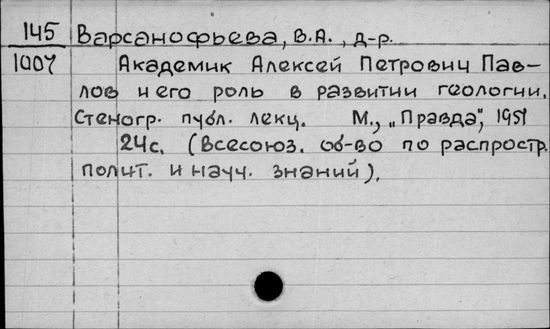 145 Варсанофьева, В.А., д-р.
1007 Академик Алексей Петрович Пав-
лов и его роль в развитии геологии.
Стеногр. публ. лекц. М., „Правда", 1951
24с. (Всесоюз. об-во по распростр.
полит. и науч. знаний).